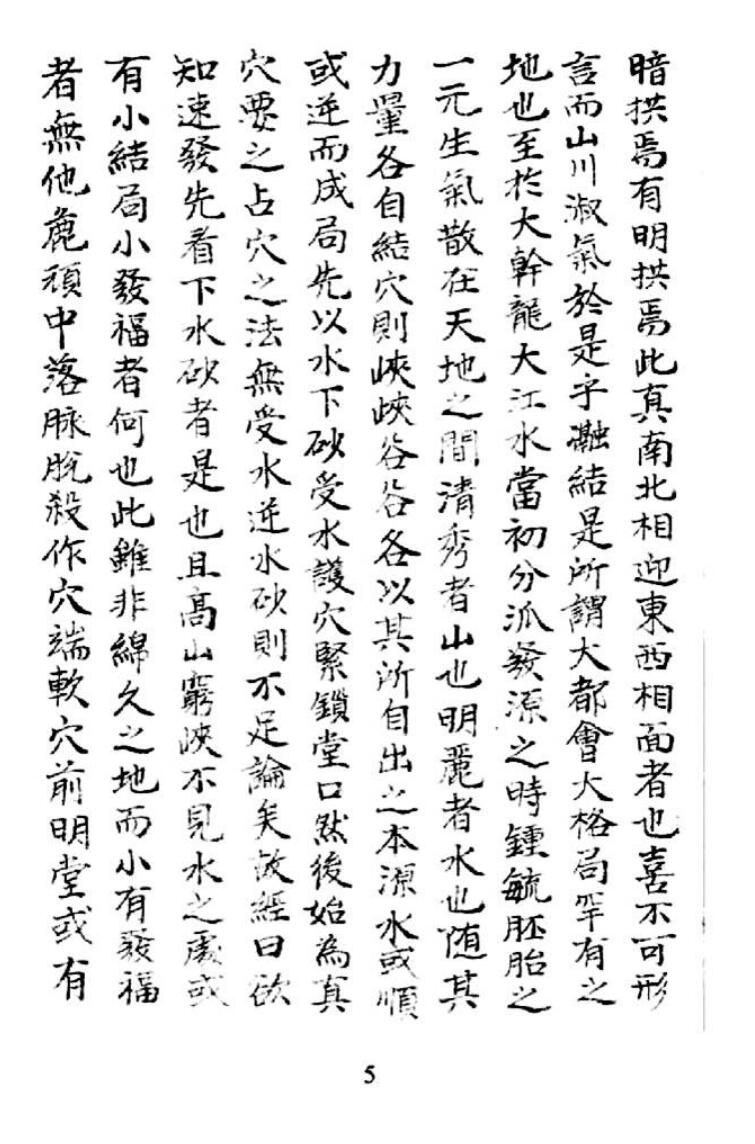 暗拱焉有明拱焉此真南北相迎東西相面者也喜不可形
言而山川淑氣於是乎融結是所謂大都會大格局罕有之
地也至於大幹龍大江水當初分派發源之時鍾毓胚胎之
一元生氣散在天地之間清秀者山也明麗者水也随其
力量各自結穴則峽峽谷谷各以其所自出之本源水或順
或逆而成局先以水下砂受水護穴緊鎖堂口然後始為真
穴要之占穴之法無受水逆水砂則不足論矣故經曰欲
知速發先看下水砂者是也且高山窮峽不見水之處或
有小結局小發福者何也此雖非綿久之地而小有發福
者無他麁頑中落脉脫殺作穴端軟穴前明堂或有
5